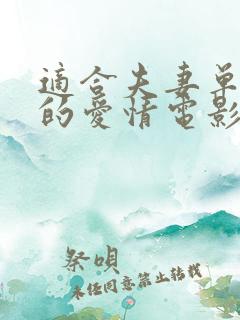 適合夫妻單
的愛情電影
祭唄
未经同意禁止转载